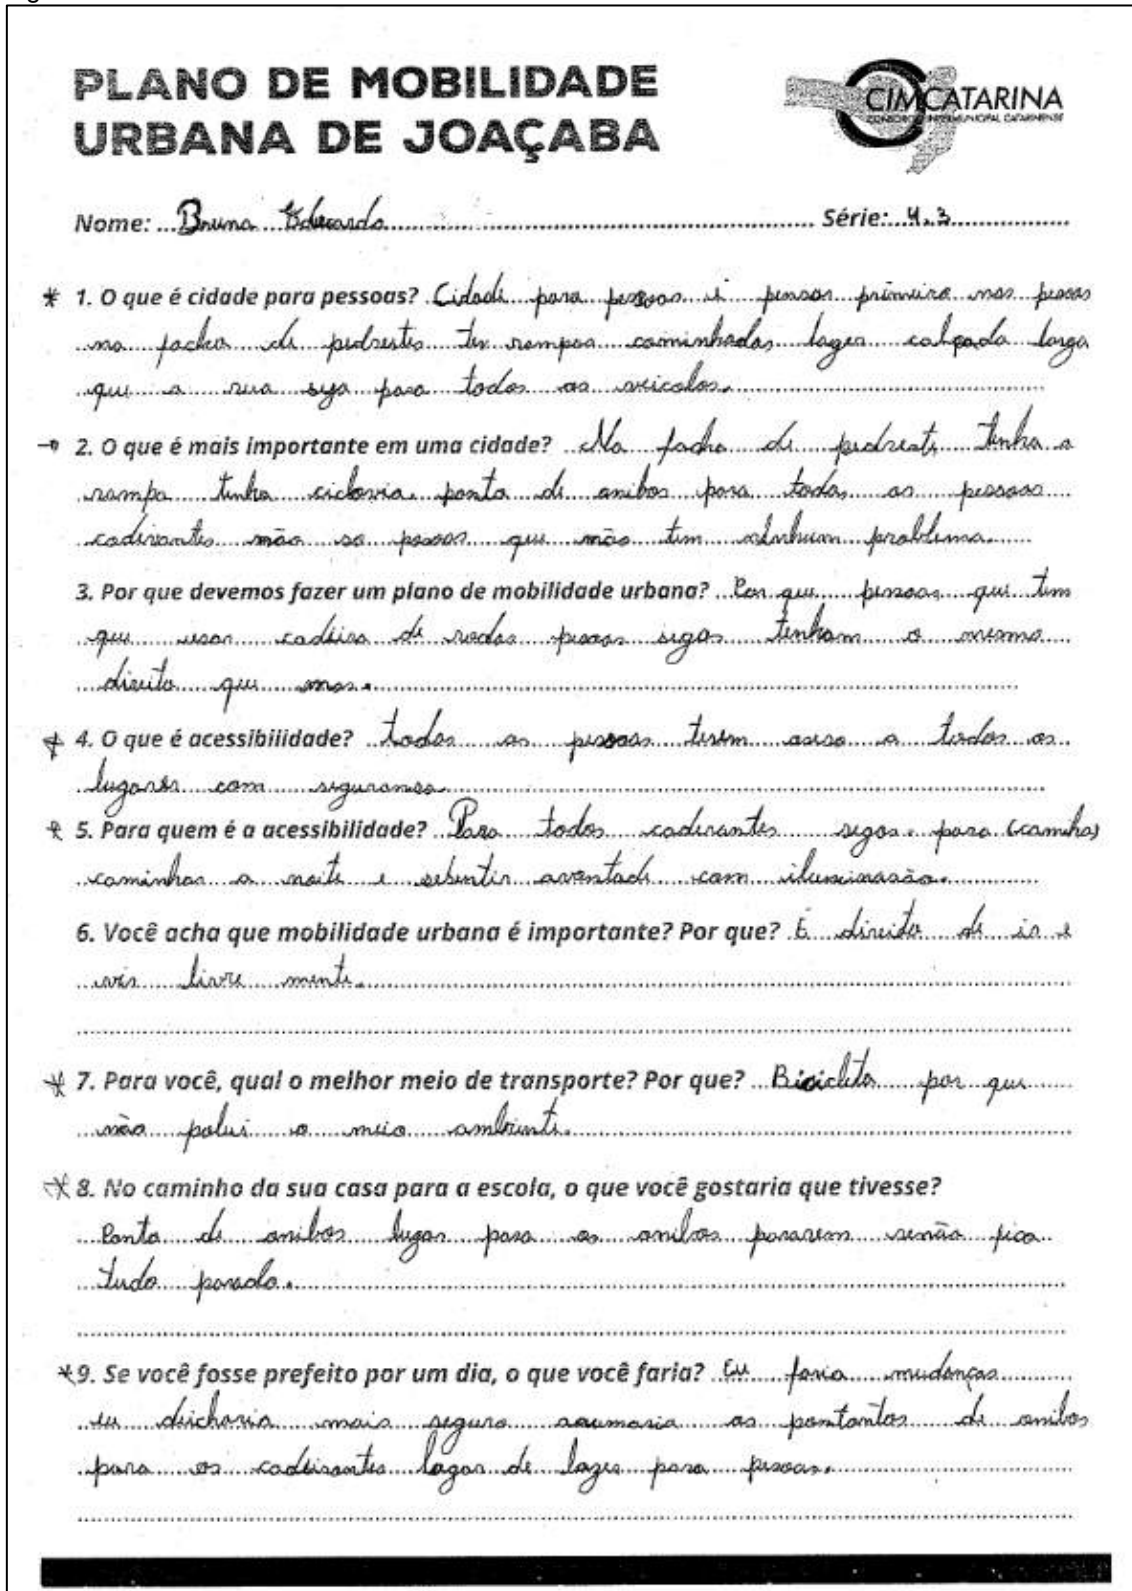 PLANO DE MOBILIDADE
URBANA DE JOAÇABA
CIMCATARINA
CONSÓRCIO INTERMUNICIPAL CATARINENSE
Nome: Bruna Eduarda Série: 4.3
1. O que é cidade para pessoas? Cidade para pessoas é pensar primeiro nas pesoas
na facha de pedrestes ter rampas caminhadas lazer calçada larga
que a rua seja para todos os veicolos.
2. O que é mais importante em uma cidade? Na facha de pedreste tenha a
rampa tenha ciclovia. ponto de onibos para todas as pessoas
cadirantes não so pesoas que não tem nenhum problema.
3. Por que devemos fazer um plano de mobilidade urbana? Por que pessoas que tem
que usar cadeira de rodas pesoas segas tenham o mesmo
direito que nos.
4. O que é acessibilidade? todas as pessoas terem aseso a todos os
lugares com seguransa.
5. Para quem é a acessibilidade? Para todos cadirantes segos. para (caminha)
caminhar a noite e sesentir avontade com iluminasão.
6. Você acha que mobilidade urbana é importante? Por que? É direito de ir e
vir livre mente.
7. Para você, qual o melhor meio de transporte? Por que? Bicicleta por que
não polui o meio ambiente.
8. No caminho da sua casa para a escola, o que você gostaria que tivesse?
Ponto de onibos lugar para os onibos pararem senão fica
tudo parado.
9. Se você fosse prefeito por um dia, o que você faria? Eu faria mudanças
eu deicharia mais seguro de onibos
para os cadeirantes lagar de lazer para pesoas.